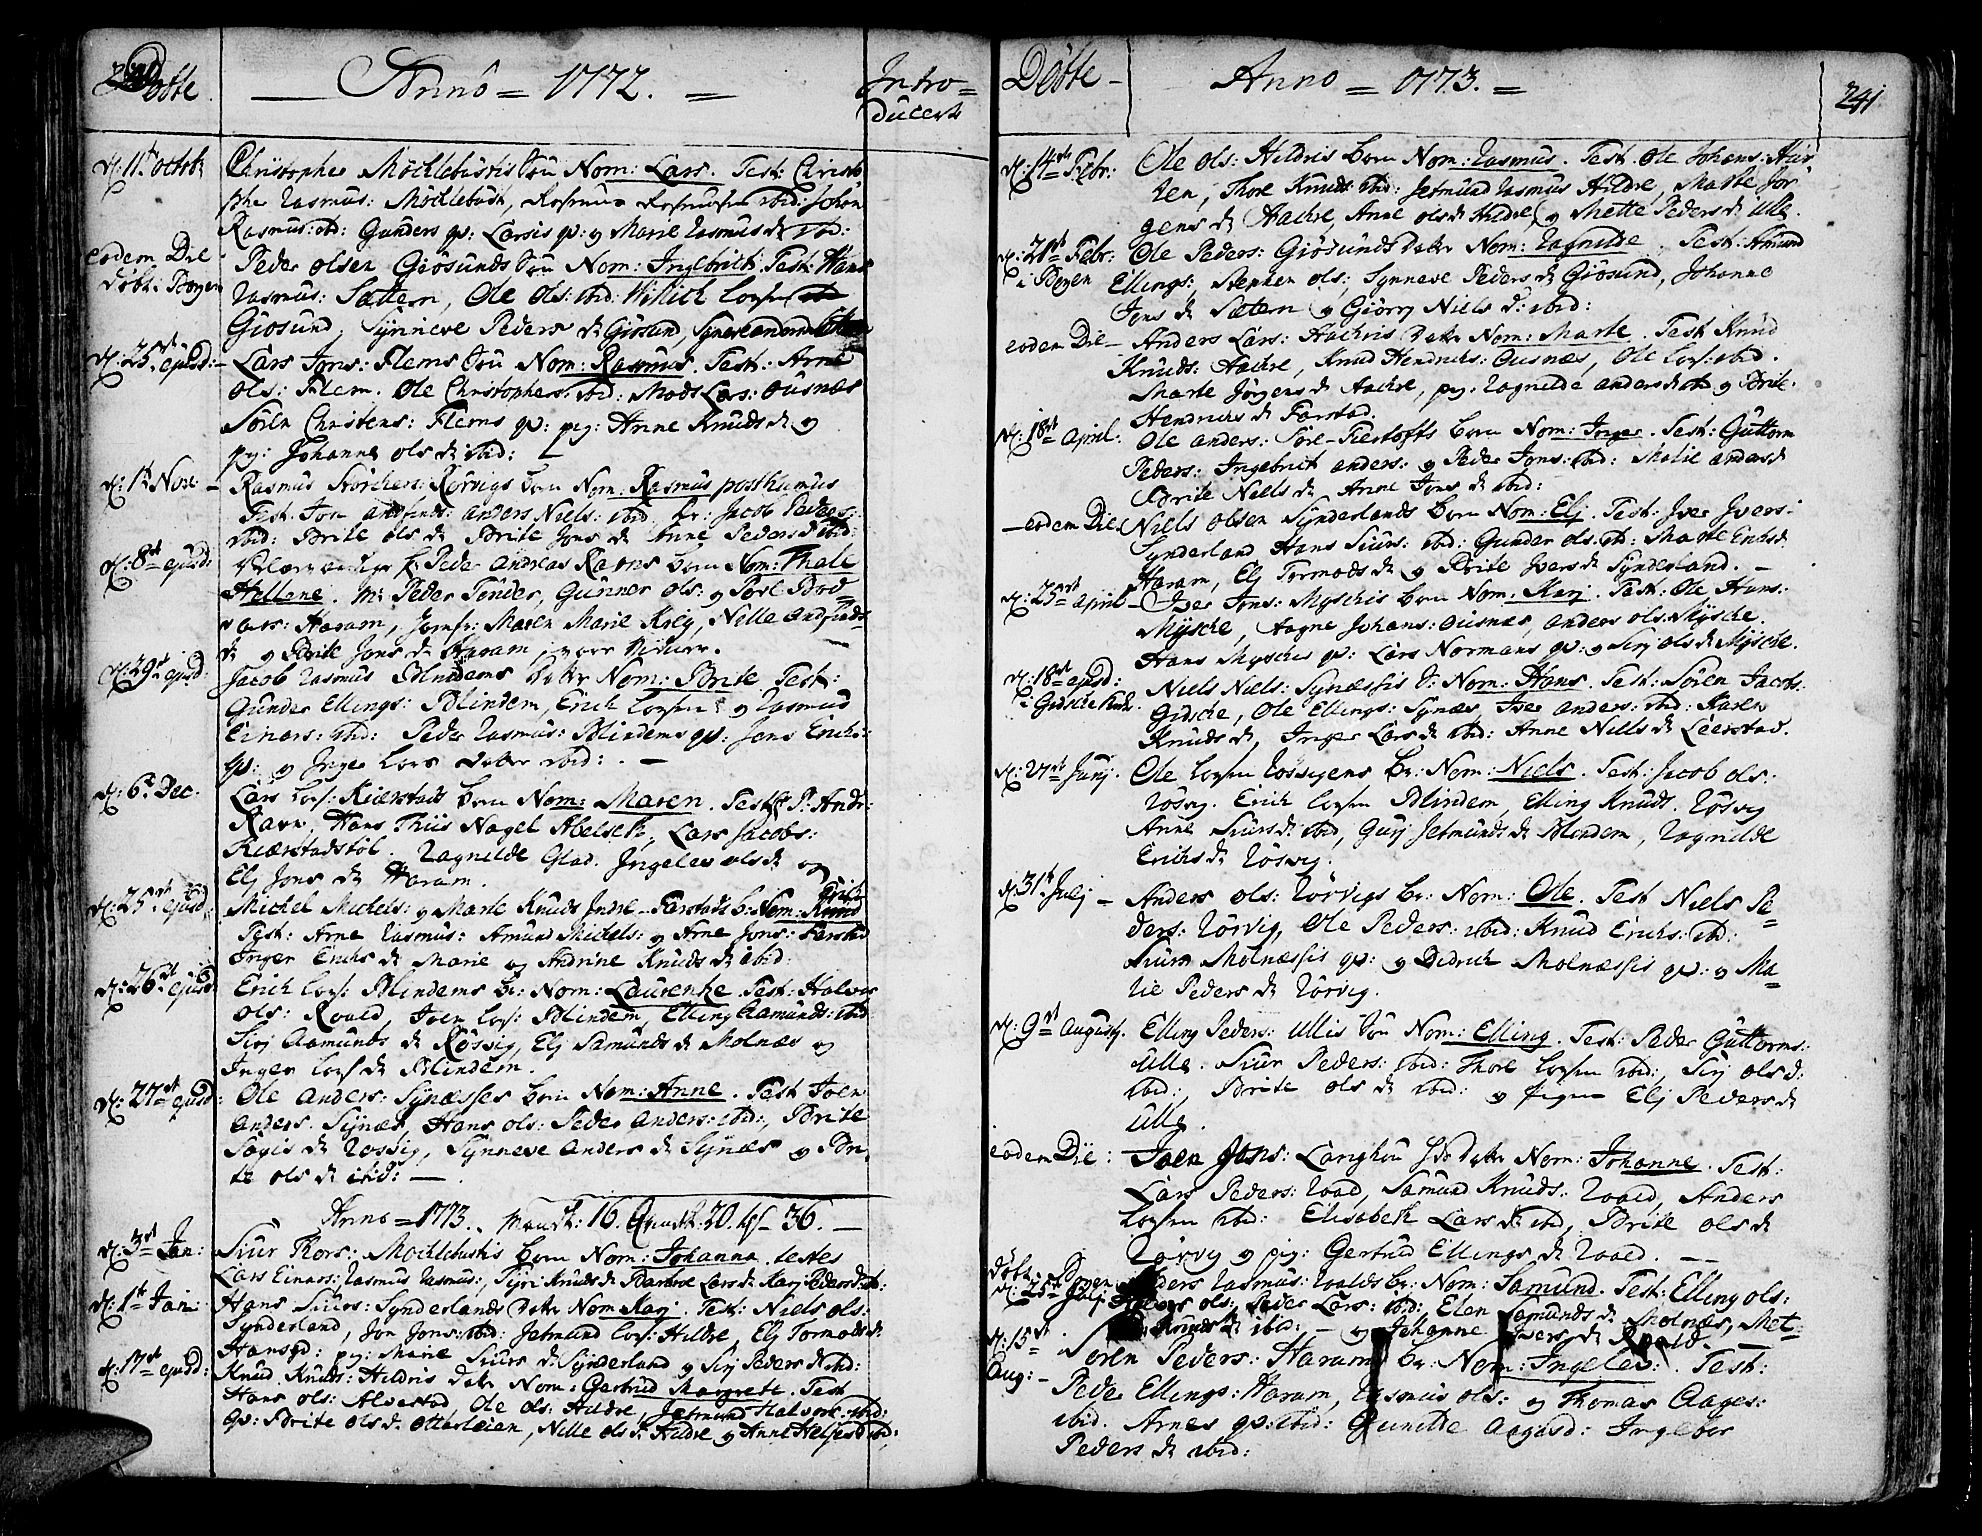 240 Døbte
Anno = 1772. =
Intro=
ducerte
d: 11te octobr
Christopher Möchlebustis Søn Nom: Lars. Test: Christo
pher Rasmus: Möchlebust, Rasmus Rasmussen ibid: Johan
Rasmus: ibid: Gunders qv: Larsis qv: og Marie Rasmus dr ibid:
eodem Die
døbt i Borgen
Peder Olsen Giösunds Søn Nom: Ingebrit. Test: Hans
Rasmus: Sættem, Ole Ols: ibid: Willich Lars:
Giosund, Synneve Peders dr Giosund,
d: 25de ejusd:
Lars Jons: Flems Søn Nom: Rasmus. Test: Arne
Ols: Flem. Ole Christophers: ibid: Mads Lars: Ousnæs
Sören Christens: Flems qv: pig: Anne Knuds dr og
pig: Johanne Ols dr ibid:
d: 1te Nov:
Rasmus Rörvigs barn Nom: Rasmus posthumus
Test: Jon Anders Niels: ibid. Jacob Peders:
ibid: Brite Ols dr Brite Jons dr Anne Peders dr ibid:
d: 8de ejusd:
Hr. Peder Andreas Ravns barn Nom: Thale
Hellene. Mr Peder Tønder, Gunner Ols: og Povl
Haram, Jomfr: Maren Marie Krey, Nille
dr og Brite Jons dr Haram, vare Viduer.
d: 29de ejusd:
Jacob Rasmus Blindems Datter Nom: Brite Test:
Gunder Ellings: Blindem, Erich Larsen og Rasmus
Einars: ibid: Peder Rasmus: Blindems qv: Jens Erichs:
qv: og Inger Lars Datter ibid:
d: 6te Dec:
Lars Lars: Kierstads barn Nom: Maren. Test: Hr P: Andr:
Ravn, Hans Thiis Nagel Abelseth, Lars Jacobs:
Kierstadstöl. Ragnilde Glad. Ingelev Ols dr og
Elj Jons dr Haram.
d: 25de ejusd:
Michel Michels: og Marte Knuds Indre-Farstads b: Nom: Knud
Erich
Test: Arne Rasmus: Amund Michels: og Arne Jons: Farstad
Inger Erichs dr Marie og Andrine Knuds dr ibid:
d: 26de ejusd:
Erich Lars: Blindems br: Nom: Laurentze. Test: Halvor
Ols: Roald, Joen Lars: Blindem, Elling Aamunds: ibid
Sirj Aamunds dr Røsvig, Elj Samunds dr Molnæs og
Inger Lars dr Blindem.
d: 27de ejusd:
Ole Anders: Synæsses barn Nom: Anne. Test: Joen
Anders: Synæs, Hans Ols: Peder Anders: ibid:, Brite
dr Røsvig, Synneve Anders dr Synæs og Bri
te Ols dr ibid:
Anno = 1773.
d: 3de Jan:
Siur Thors: Mochlebustis barn Nom: Johanna. testes
Lars Einars: Rasmus Rasmus:, Siri Knuds dr Barbroe Lars dr Karj Peders dr ibid:
d: 1te Jan:
Hans Siurs: Synderlands Datter Nom: Karj. Test: Niels Ols:
Synderland, Jon Jons: ibid: Jetmund Lars: Hildre, Elj Tormods dr
pig: Marie Siurs dr Synderland og Sirj Peders dr ibid:
d: 17de ejusd:
Knud Knuds: Hildris Datter Nom: Gertrud Margrete. Test
Hans Ols: Alvestad, Ole Ols: Hildre, Jetmund Halvors: ibid:
qv: Brite Ols dr Otterleien, Nille Ols dr Hildre og Anne Helges dr ibid:
Døbte -
Anno = 1773. =
241
d: 14de Febr:
Ole Ols: Hildris barn Nom: Rasmus. Test. Ole Johans: Hur
ten, Thore Knuds: ibid: Jetmund Rasmus Hildre, Marte Jør
gens dr Aachre, Anne Ols dr Hildre og Mette Peders dr Ulle.
d: 21de Febr:
i Borgen
Ole Peders: Giösunds Datter Nom: Ragnilde. Test: Amund
Ellings:, Stephen Ols:, Synneve Peders dr Giösund, Johanne
Jons dr Sætem og Giörrj Niels dr ibid:
eodem Die-
Anders Lars: Aachris Datter Nom: Marte. Test Knud
Knuds: Aachre, Knud Hendrichs: Ousnæs, Ole Lars: ibid.
Marte Jørgens dr Aachre, pig: Ragnilde Anders dr ibid og Brite
Hendrichs dr Farstad.
d: 18de April:
Ole Anders: Søre-Fiertofts barn Nom: Inger. Test: Guttorm
Peders: Ingebrit Anders: og Peder Jons: ibid: Malie Anders d
Brite Niels dr Anne Jons dr ibid:
-eodem Die.
Niels Olsen Synderlands barn Nom: Elj. Test: Iver Ivers:
Synderland Hans Siurs: ibid: Gunder Ols: ibid: Marte Erichs d
Haram, Elj Tormods dr og Brite Ivers dr Synderland.
d: 25de April-
Iver Jons: Myschis barn Nom: Karj. Test: Ole Hans:
Mysche, Aagne Johans: Ousnæs, Anders Ols: Mysche.
Hans Myschis qv: Lars Normans qv: og Sirj Ols dr Mysche.
d: 18de ejusd:
i Gidsche Kirch.
Niels Niels: Synæssis S: Nom: Hans. Test: Sören Jacobs:
Gidsche, Ole Ellings: Synæs, Iver Anders: ibid: Karen
Knuds dr, Inger Lars dr ibid: Anne Niels dr Leerstad.
d: 27de Junj.
Ole Larsen Røsvigens br: Nom: Niels. Test: Jacob Ols:
Røsvig. Erich Larsen Blindem, Elling Knuds: Røsvig
Anne Siurs dr ibid, Gurj Jetmunds dr Blindem, Ragnilde
Erichs dr Røsvig.
d: 31te Julj -
Anders Ols: Rörvigs br: Nom: Ole. Test Niels Pe-
ders: Rörvig, Ole Peders: ibid: Knud Erichs: ibid:
Siurs Molnæssis qv: og Didrich Molnæssis qv: og Ma-
lie Peders dr Rörvig.
d: 9de Augusti.
Elling Peders: Ullis Søn Nom: Elling. Test: Peder Guttorms:
Ulle. Siur Peders: ibid: Thore Larsen ibid:, Sirj Ols d:
ibid:, Brite Ols dr ibid: og Pigen Elj Peders dr
Ulle.
eodem Die:
Joen Jons: Datter Nom: Johanne. Test:
Lars Peders: Roald, Samund Knuds: Roald, Anders
Larsen ibid: Elisabeth Lars dr ibid, Brite Ols dr
Rörvig og pig: Gertrud Ellings dr Roald.
døbt i Borgen
d: 25de Julj
Anders Rasmus: Roalds br: Nom: Samund. Test: Elling Ols:
Ols: Peder Lars: ibid: Elen Samunds dr Molnæs, Met
Knuds dr ibid: - og Johanne Ivers dr Roald.
d: 15de
Aug: -
Sören Peders: Haram br: Nom: Ingelev: Test:
Peder Ellings: Haram, Rasmus Ols: og Thomas Aages:
ibid. Arnes qv: ibid: Gunilde Aages d: Ingebor
Peders dr ibid: